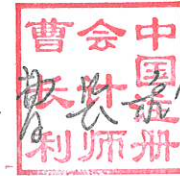 中国注册
会计师
曹长利